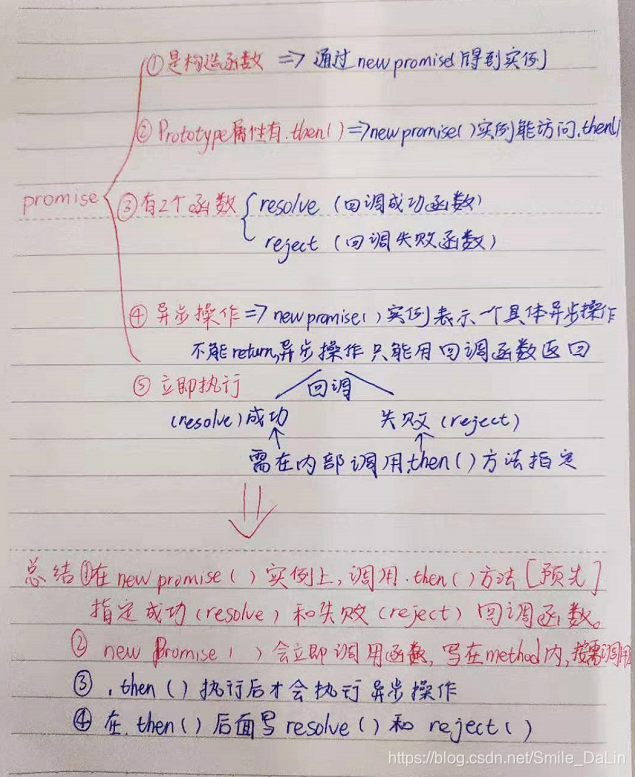 ① 是构造函数 => 通过 new promise() 得到实例
② Prototype 属性有 .then() => new promise() 实例能访问 .then()
promise
③ 有2个函数 { resolve (回调成功函数)
reject (回调失败函数)
④ 异步操作 => new promise() 实例表示一个具体异步操作
不能return,异步操作只能用回调函数返回
⑤ 立即执行 回调
(resolve) 成功 失败 (reject)
需在内部调用.then()方法指定
总结 ①在 new promise () 实例上,调用 .then() 方法 [预先]
指定成功 (resolve) 和失败 (reject) 回调函数。
② new Promise () 会立即调用函数, 写在method内, 按需调用
③ .then () 执行后才会执行异步操作
④ 在 .then() 后面写 resolve () 和 reject ()
https://blog.csdn.net/Smile_DaLin